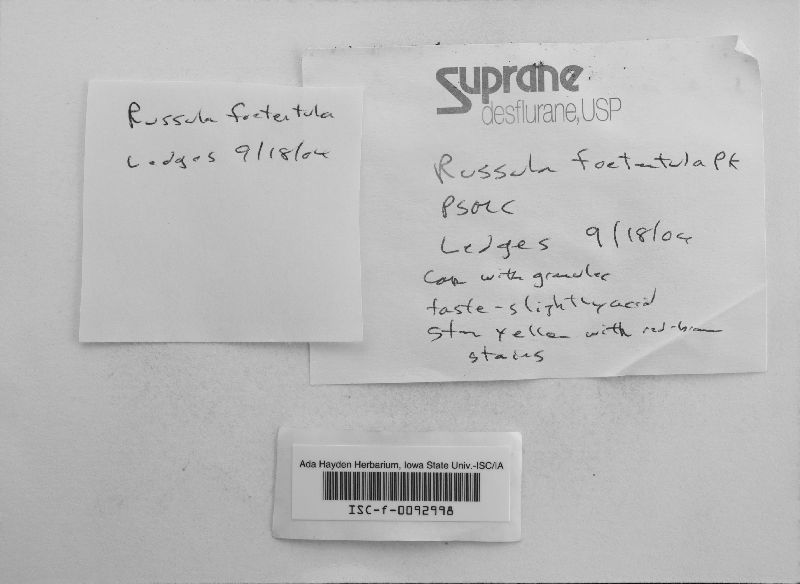 Russula foetentula
Ledges 9/18/04
Suprane
desflurane, USP
Russula foetentula Pk
Ledges 9/18/04
Cap with granules
taste - slightly acrid
Stem yellow with red-brown
stains
Ada Hayden Herbarium, Iowa State Univ.-ISC/IA
ISC-f-0092998